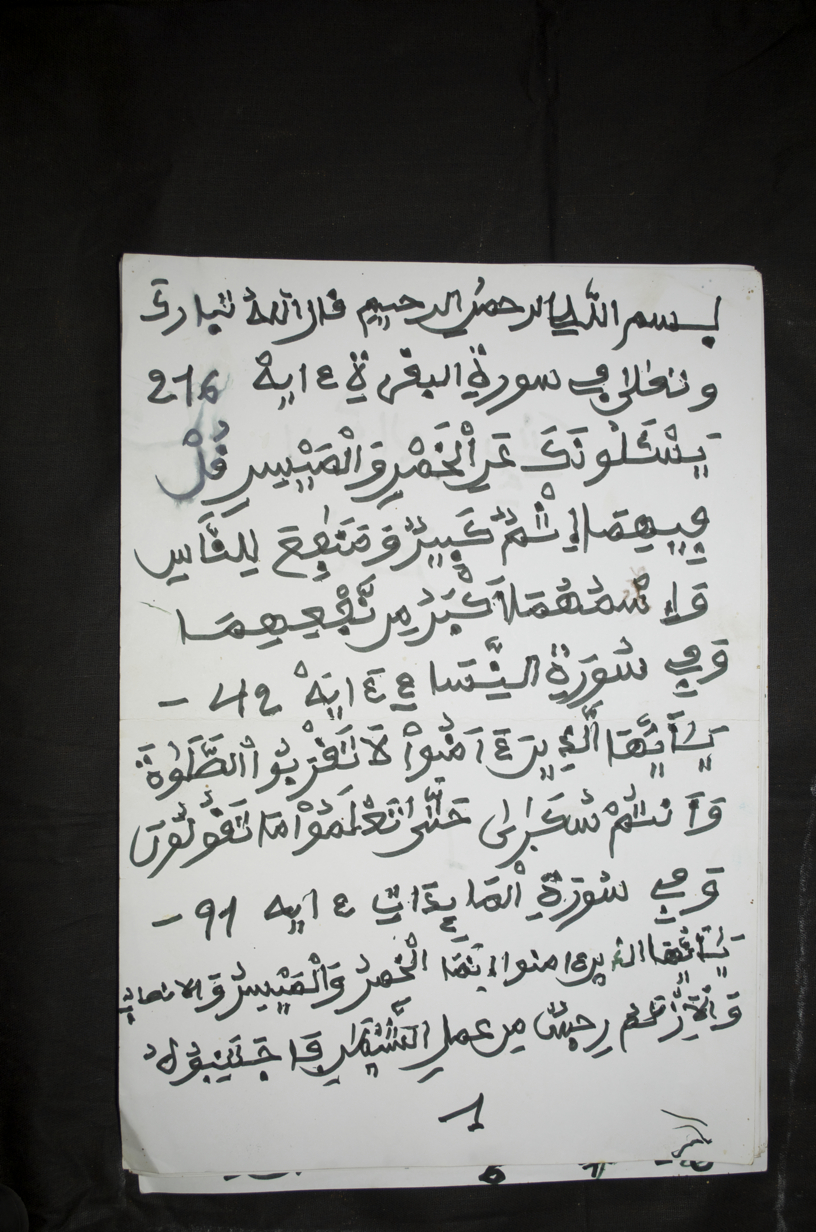 بسم الله الرحمن الرحيم قال الله تبارك
وتعلى في سورة البقرة ءاية 216
يَسْـَٔلُونَكَ عَنِ الْخَمْرِ وَالْمَيْسِرِ قُلْ
فِيهِمَا إِثْمٌ كَبِيرٌ وَمَنَٰفِعُ لِلنَّاسِ
وَإِثْمُهُمَا أَكْبَرُ مِن نَّفْعِهِمَا
وَفِي سُورَةِ النِّسَاءِ ءَايَةْ 42 –
يَٰأَيُّهَا الَّذِينَ ءَامَنُواْ لَا تَقْرَبُواْ الصَّلَوٰةَ
وَأَنتُمْ سُكَٰرَىٰ حَتَّىٰ تَعْلَمُواْ مَا تَقُولُونَ
وَفِي سُورَةِ الْمَايِدَاتِ ءايه 91 –
يَٰأَيُّهَا الذين ءامنوا إنَّمَا الْخَمْرُ وَالْمَيْسِرُ وَالانصاب
وَالَازْلَٰمُ رِجْسٌ مِن عملِ الشَّيْطَٰنِ فَاجْتَنِبُوهُ
1